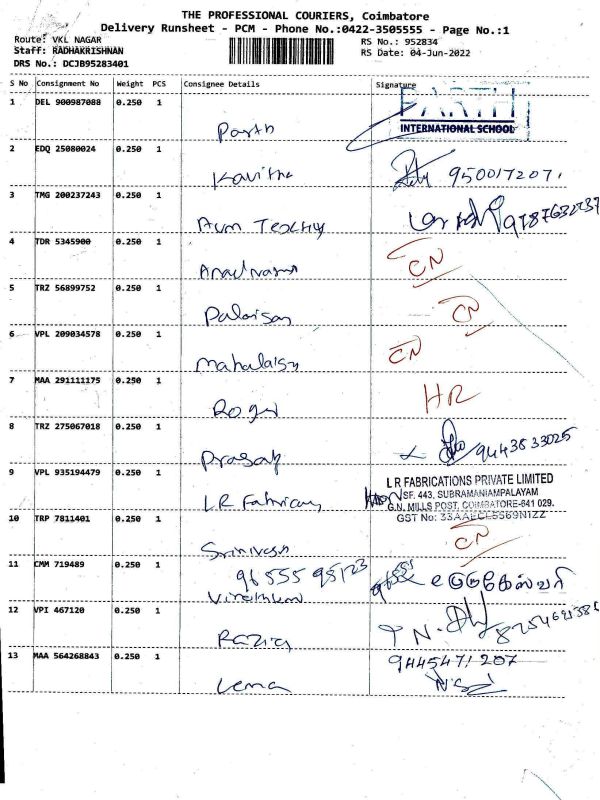 THE PROFESSIONAL COURIERS, Coimbatore
Delivery Runsheet - PCM - Phone No.:0422-3505555 - Page No.:1
Route: VKL NAGAR
RS No.: 952834
Staff: RADHAKRISHNAN
RS Date: 04-Jun-2022
DRS No.: DCJB95283401
S No Consignment No Weight PCS Consignee Details Signature
1 DEL 900987088 0.250 1 Parth
INTERNATIONAL SCHOOL
2 EDQ 25080024 0.250 1 Kavitha 9500172071
3 TMG 200237243 0.250 1
4 TDR 5345900 0.250 1 CN
5 TRZ 56899752 0.250 1 CN
6 VPL 209034578 0.250 1 CN
7 MAA 291111175 0.250 1 Roger HR
8 TRZ 275067018 0.250 1 9443833025
9 VPL 935194479 0.250 1 L.R Fabricans
L R FABRICATIONS PRIVATE LIMITED
SF. 443, SUBRAMANIAMPALAYAM
G.N. MILLS POST, COIMBATORE-641 029.
GST No: 33AAECL5569N1ZZ
10 TRP 7811401 0.250 1 CN
11 CMM 719489 0.250 1 96555 95123
12 VPI 467120 0.250 1 Razia
13 MAA 564268843 0.250 1 Lema 9445471207